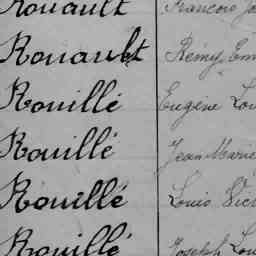 Rouault François Jo
Rouault Rémy Em
Rouillé Eugène Lou
Rouillé Jean Marie
Rouillé Louis Vic
Rouillé Joseph Lou